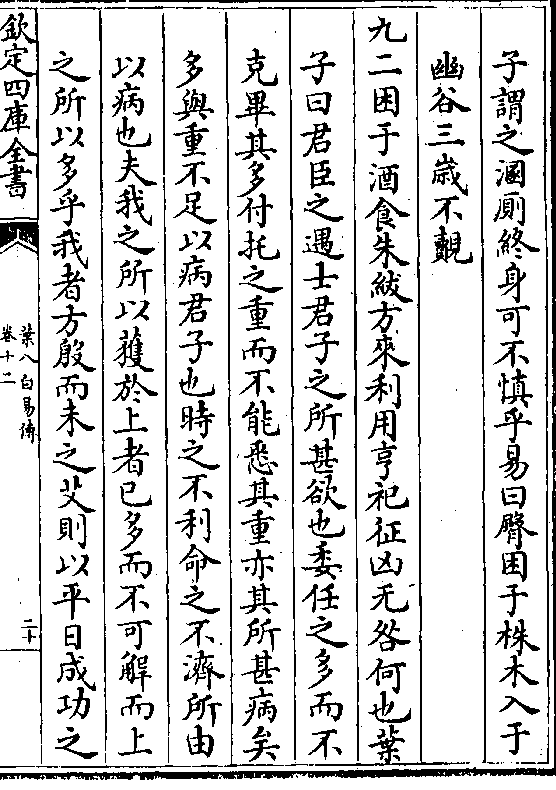 子謂之溷厠終身可不慎乎易曰臀困于株木入于
幽谷三歳不覿
九二困于酒食朱紱方來利用亨祀征凶无咎何也葉
子曰君臣之遇士君子之所甚欲也委任之多而不
克畢其多付托之重而不能悉其重亦其所甚病矣
多與重不足以病君子也時之不利命之不濟所由
以病也夫我之所以獲於上者已多而不可解而上
之所以多乎我者方殷而未之艾則以平日成功之
欽定四庫全書
葉八白易傳
卷十二
二十